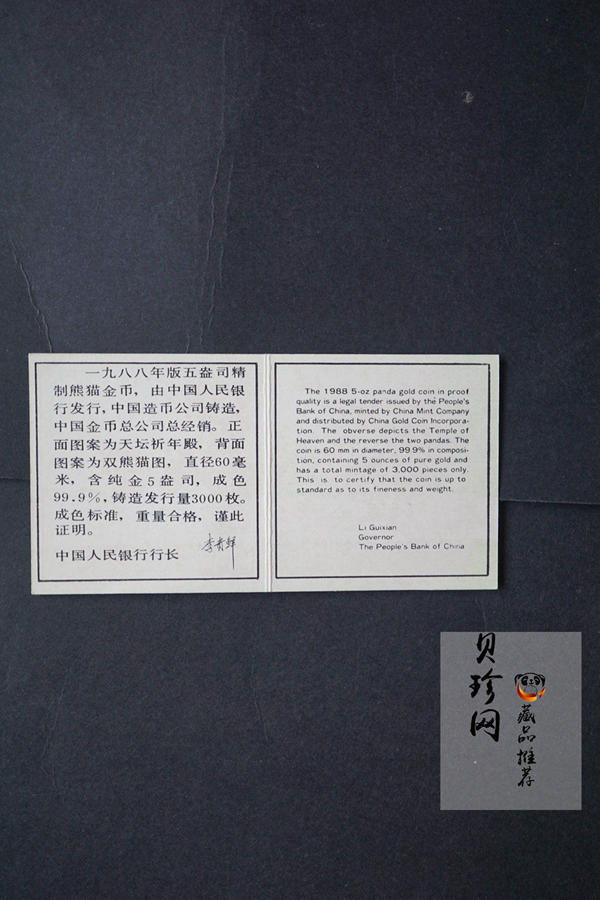 一九八八年版五盎司精
制熊猫金币，由中国人民银
行发行，中国造币公司铸造，
中国金币总公司总经销。正
面图案为天坛祈年殿，背面
图案为双熊猫图，直径60毫
米，含纯金5盎司，成色
99.9%，铸造发行量3000枚。
成色标准，重量合格，谨此
证明。
中国人民银行行长
李贵鲜
The 1988 5-oz panda gold coin in proof
quality is a legal tender issued by the People's
Bank of China, minted by China Mint Company
and distributed by China Gold Coin Incorpora-
tion. The obverse depicts the Temple of
Heaven and the reverse the two pandas. The
coin is 60 mm in diameter, 99.9% in composi-
tion, containing 5 ounces of pure gold and
has a total mintage of 3,000 pieces only.
This is to certify that the coin is up to
standard as to its fineness and weight.
Li Guixian
Governor
The People's Bank of China
贝珍网
藏品推荐